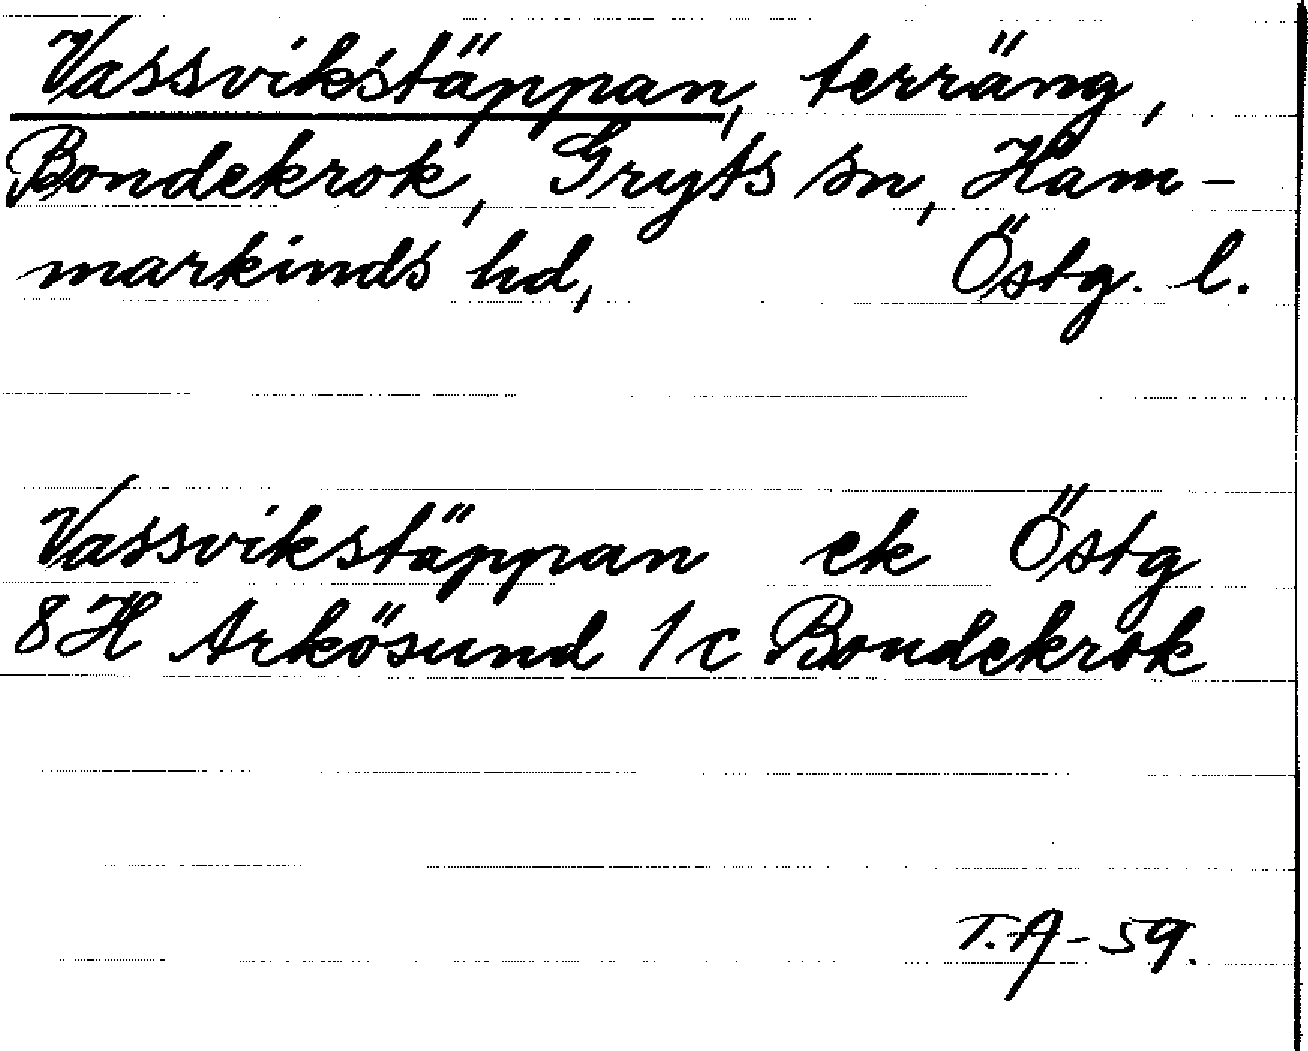 Vassvikstäppan, terräng,
Bondekrok, Gryts sn, Ham-
markinds hd, Östg. l.
Vassvikstäppan ek Östg
8H Arkösund 1c Bondekrok
T.A-59.